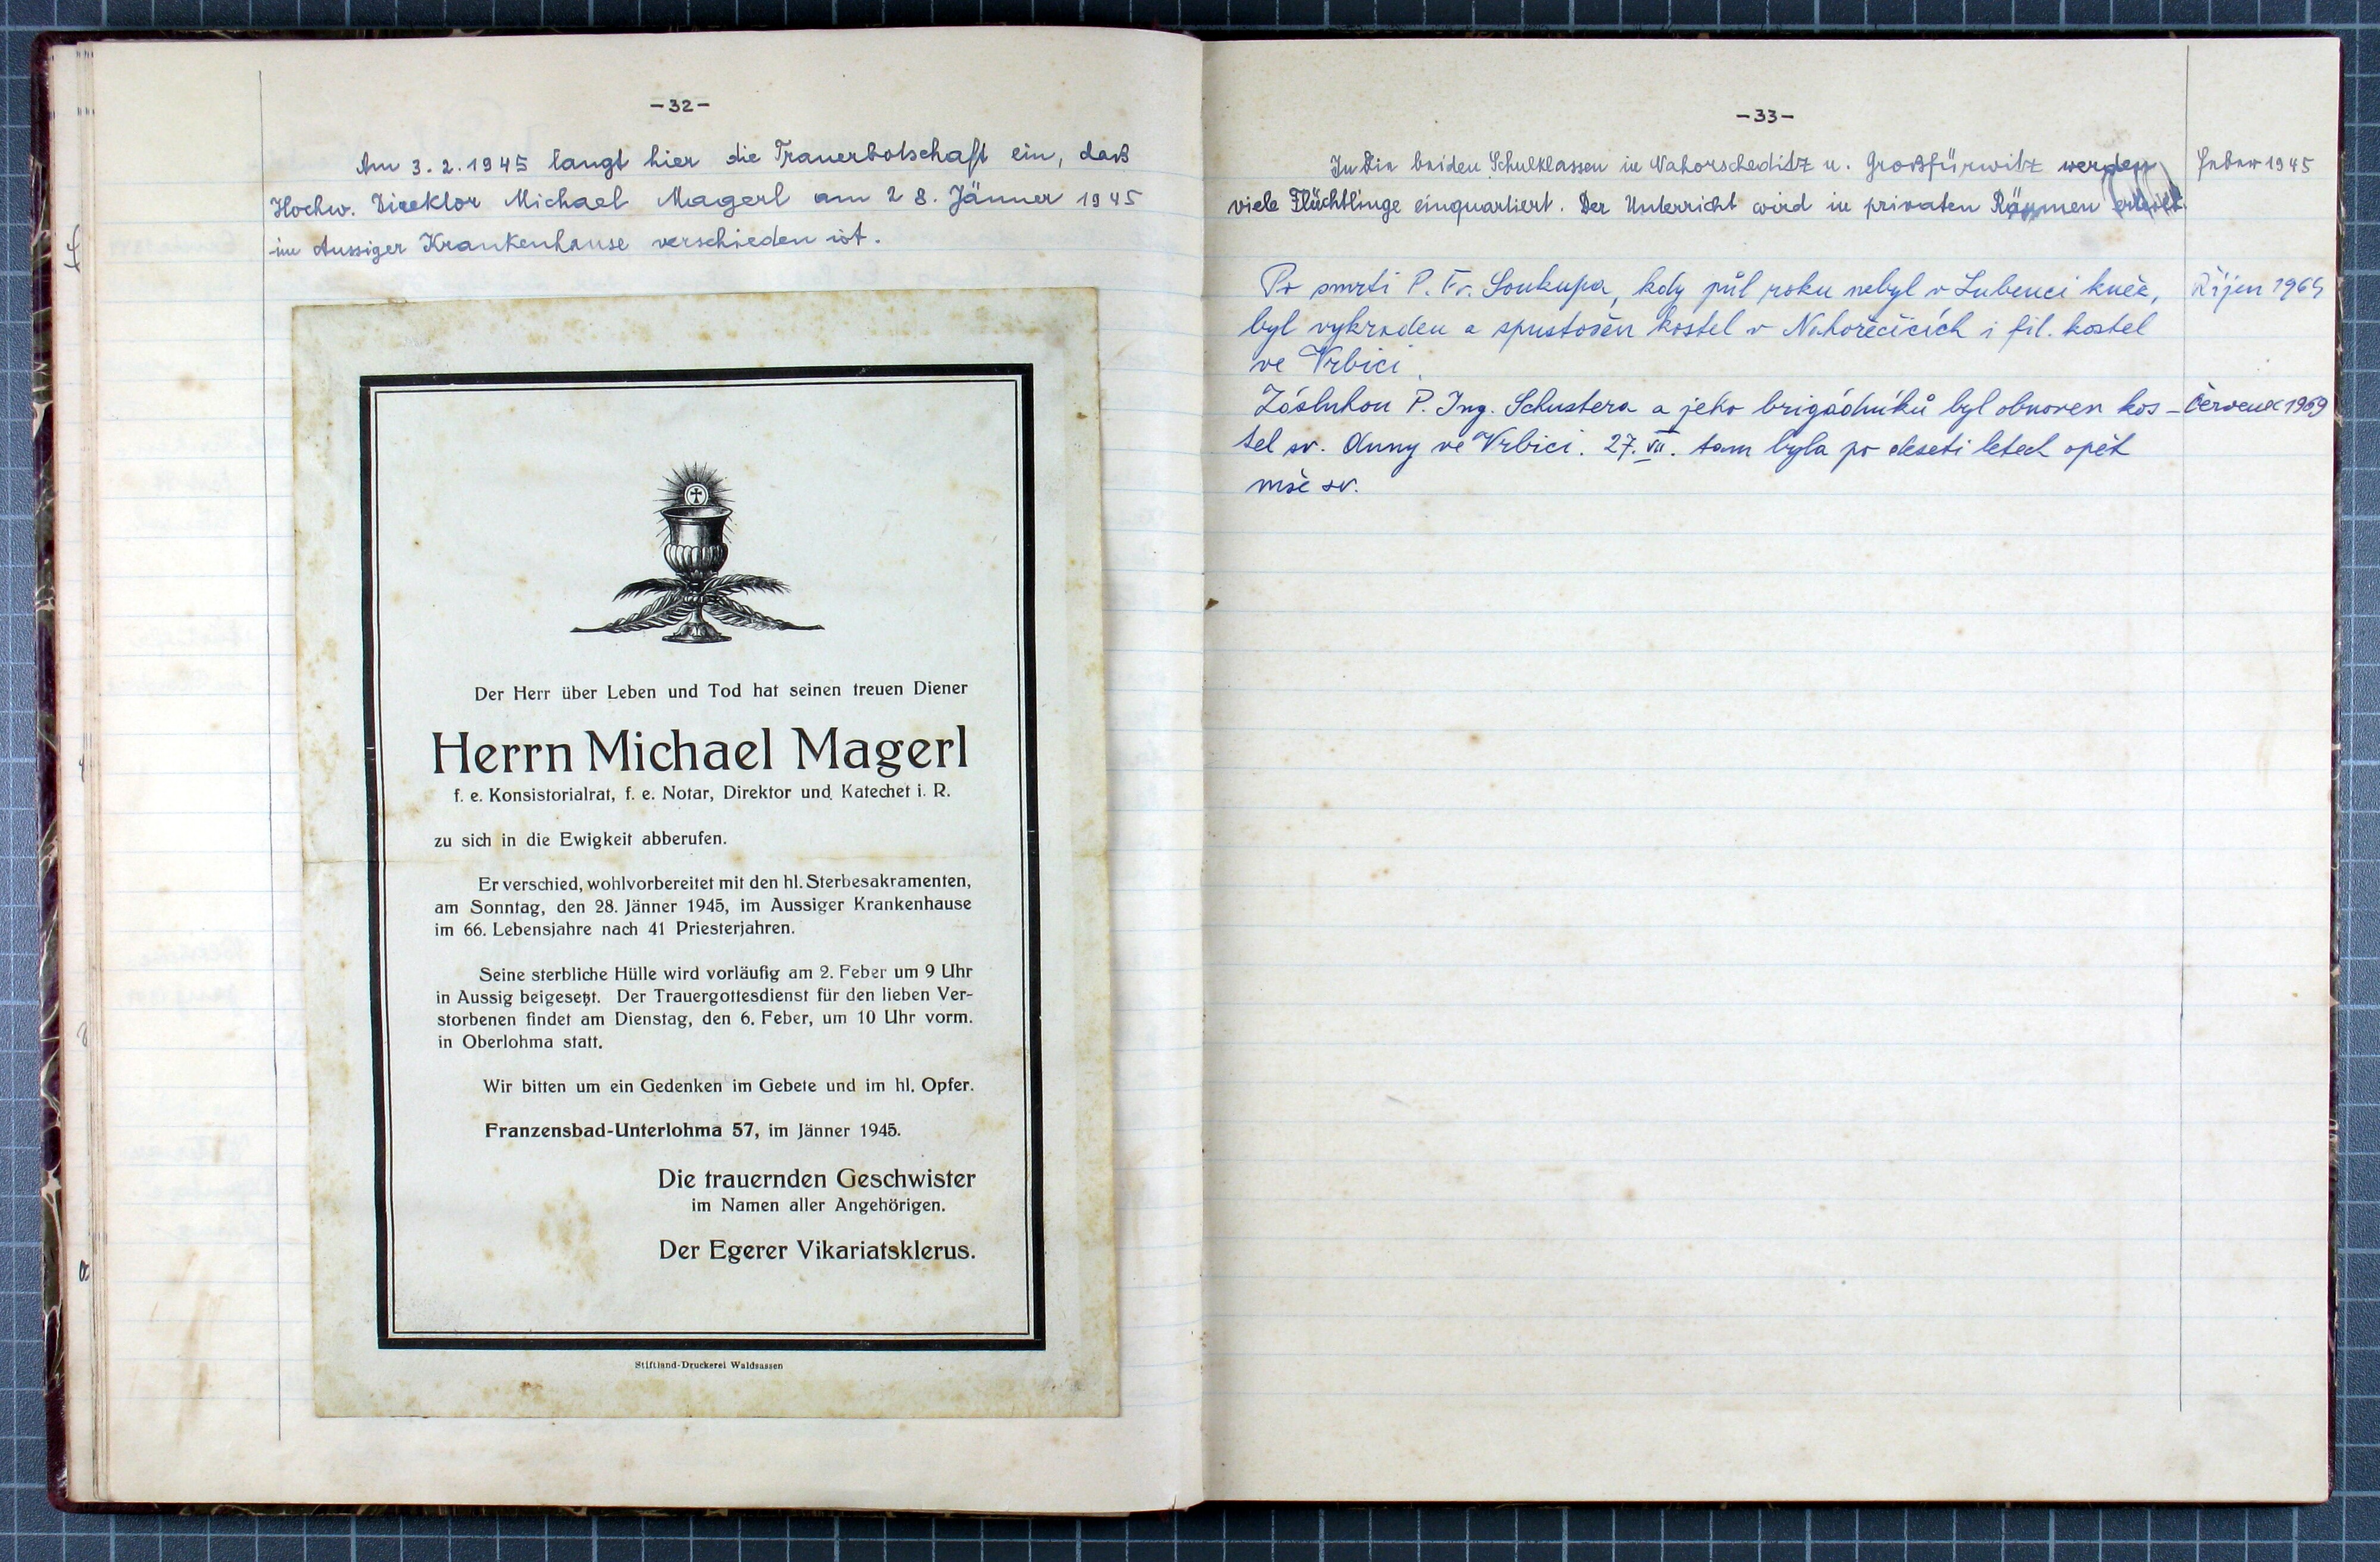 -32-
Am 3.2.1945 langt hier die Trauerbotschaft ein, daß
Hochw. Direktor Michael Magerl am 28. Jänner 1945
im Aussiger Krankenhause verschieden ist.
Der Herr über Leben und Tod hat seinen treuen Diener
Herrn Michael Magerl
f. e. Konsistorialrat, f. e. Notar, Direktor und Katechet i. R.
zu sich in die Ewigkeit abberufen.
Er verschied, wohlvorbereitet mit den hl. Sterbesakramenten,
am Sonntag, den 28. Jänner 1945, im Aussiger Krankenhause
im 66. Lebensjahre nach 41 Priesterjahren.
Seine sterbliche Hülle wird vorläufig am 2. Feber um 9 Uhr
in Aussig beigesetzt. Der Trauergottesdienst für den lieben Ver-
storbenen findet am Dienstag, den 6. Feber, um 10 Uhr vorm.
in Oberlohma statt.
Wir bitten um ein Gedenken im Gebete und im hl. Opfer.
Franzensbad-Unterlohma 57, im Jänner 1945.
Die trauernden Geschwister
im Namen aller Angehörigen.
Der Egerer Vikariatsklerus.
Stiftland-Druckerei Waldsassen
-33-
In die beiden Schulklassen in Nahorscheditz u. Großfürwitz werden
Feber 1945
viele Flüchtlinge einquartiert. Der Unterricht wird in privaten Räumen erteilt.
Po smrti P. Fr. Soukupa, kdy půl roku nebyl v Lubenci kněz,
Říjen
byl vykraden a spustošen kostel v Nahořečicích i fil. kostel
ve Vrbici.
Zásluhou P. Ing. Schustera a jeho brigádníků byl obnoven kos-
Červenec 1969
tel sv. Anny ve Vrbici. 27. VII. tam byla po deseti letech opět
mše sv.